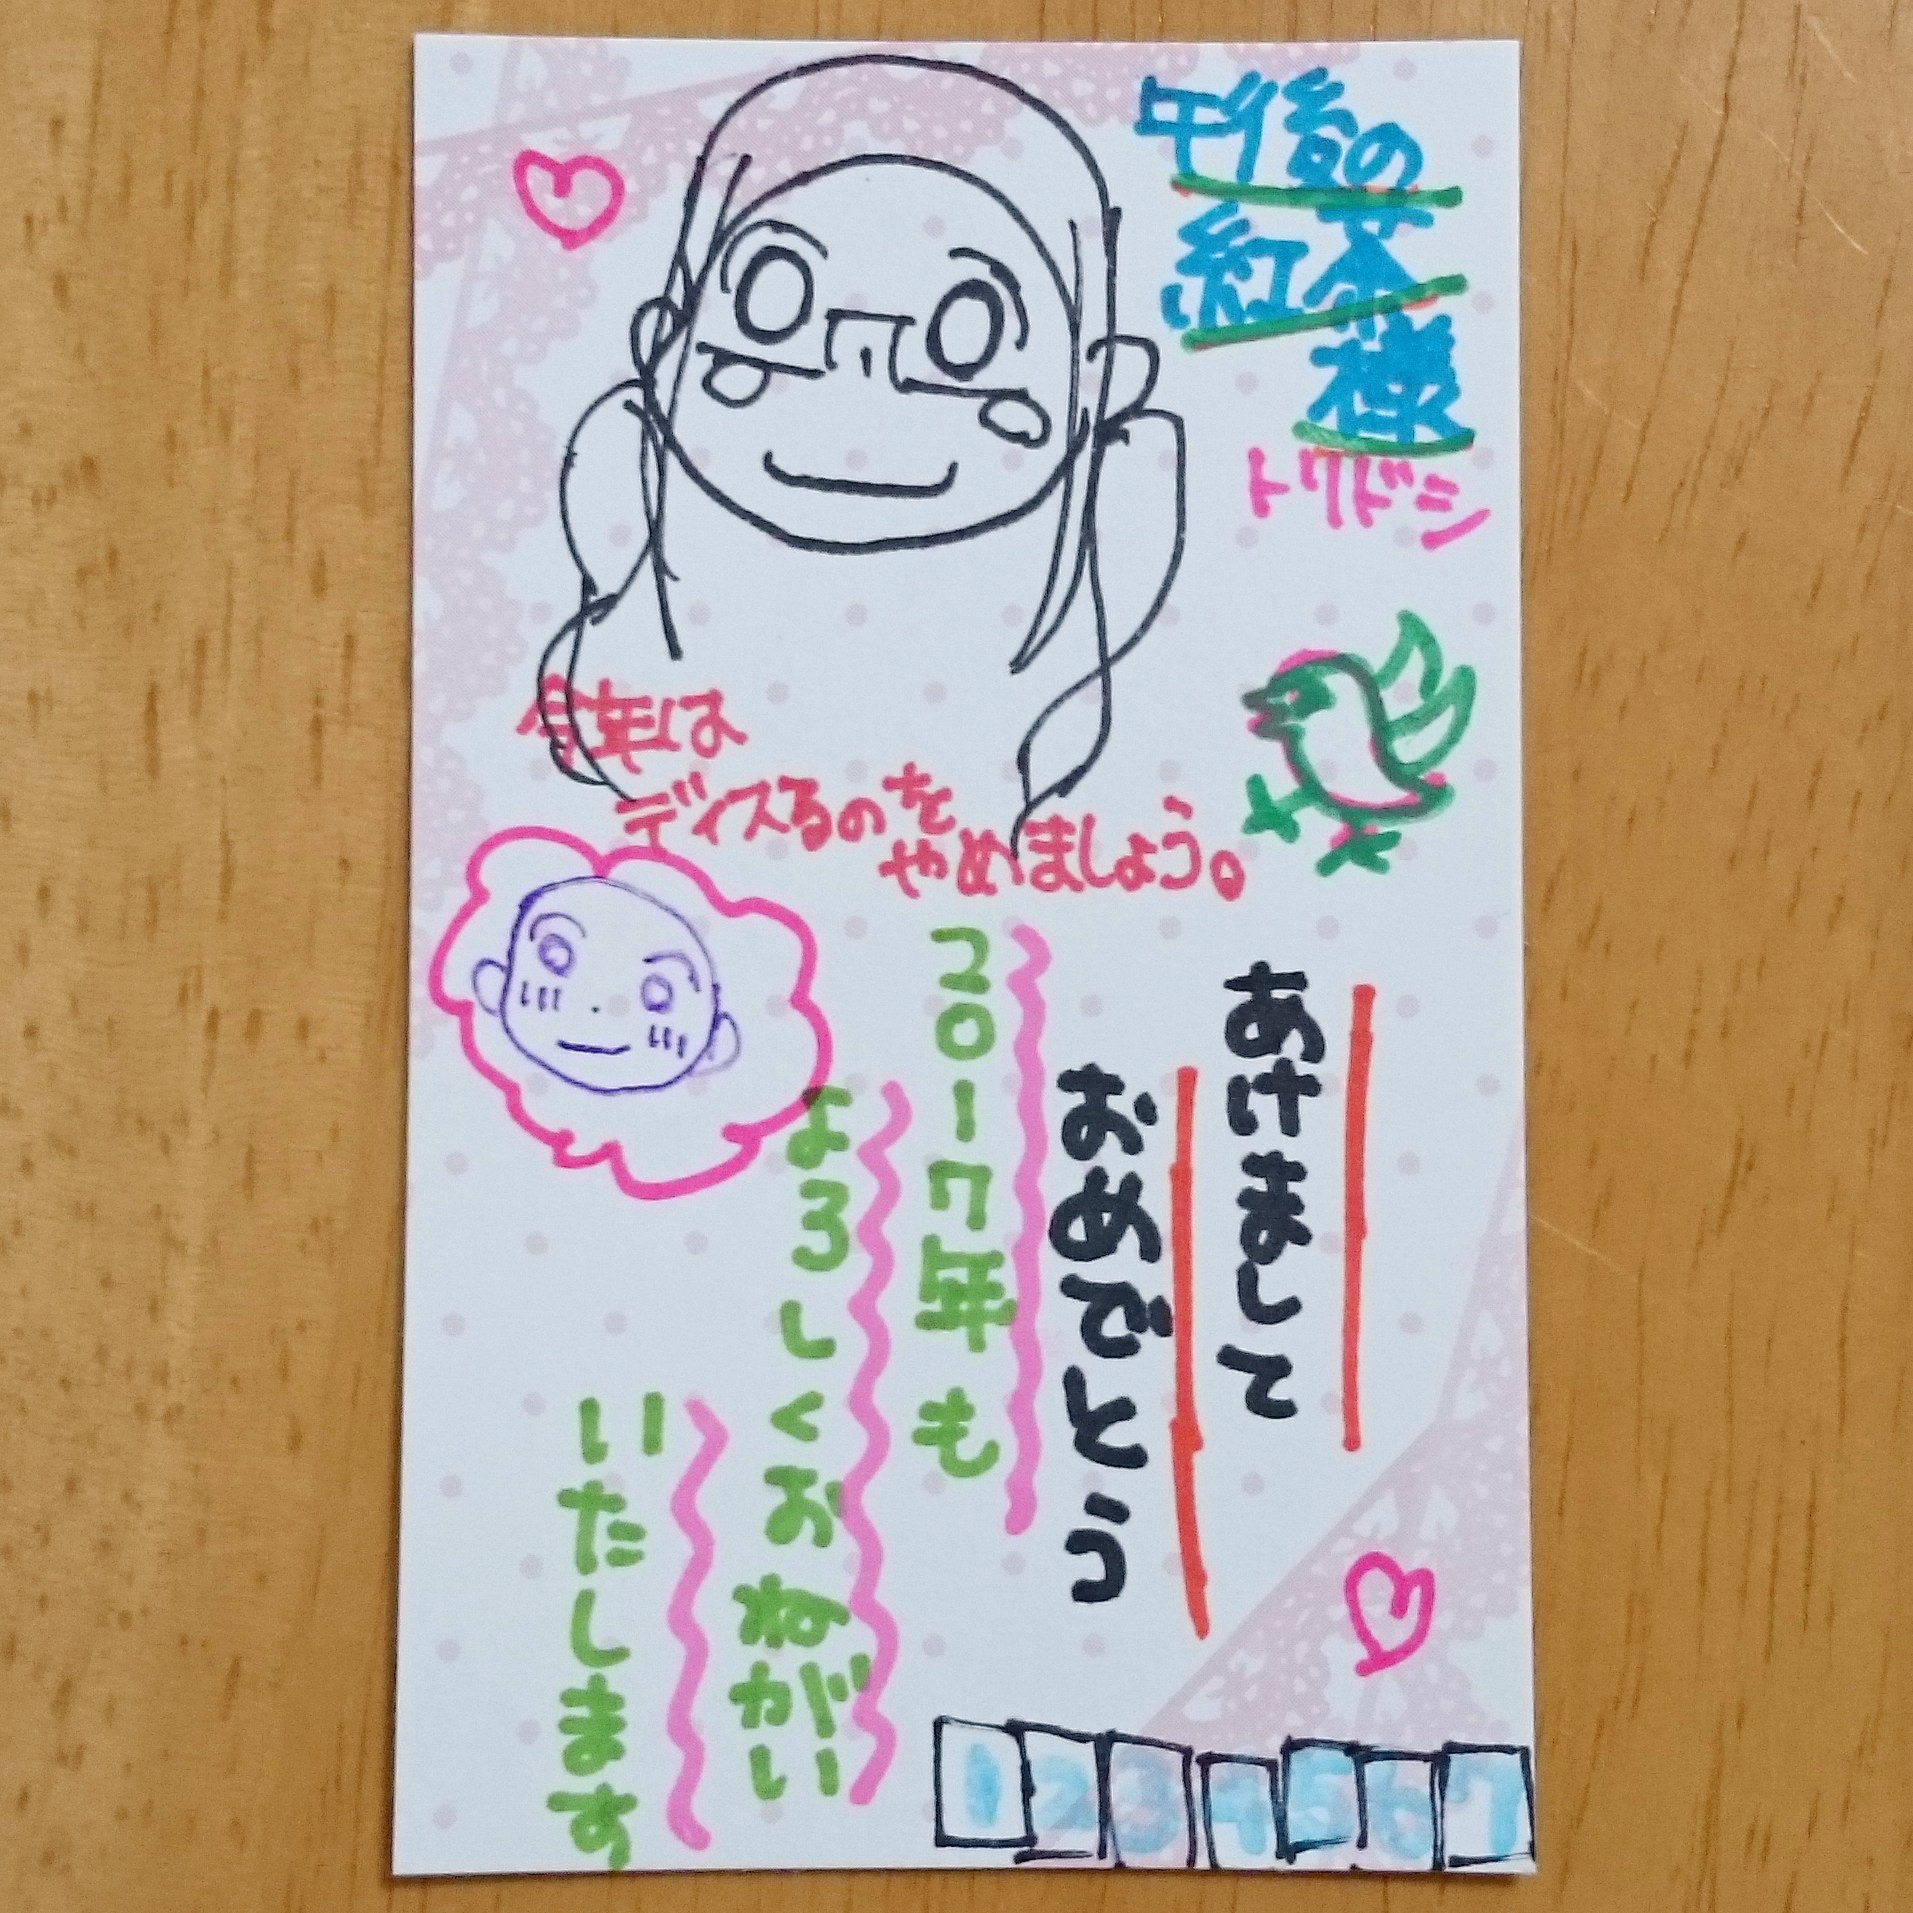 午後の
紅茶
様
トリドシ
今年は
ディスるのを
やめましょう。
あけまして
おめでとう
2017年も
よろしくおねがい
いたします
1234567